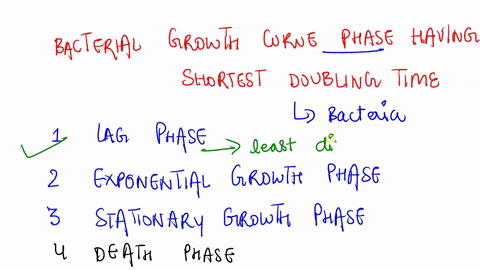 BACTERIAL GROWTH CURVE PHASE HAVING
SHORTEST DOUBLING TIME
↳ Bacteria
1 LAG PHASE → least di
2 EXPONENTIAL GROWTH PHASE
3 STATIONARY GROWTH PHASE
4 DEATH PHASE